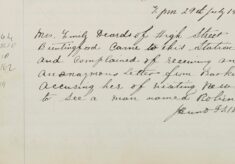 7 pm 29th July 18
Mrs. Emily Deards of High Street
Buntingford Came to this Station
and Complained of receiving an
an anonymous letter from
accusing her of
to see a man named Robin